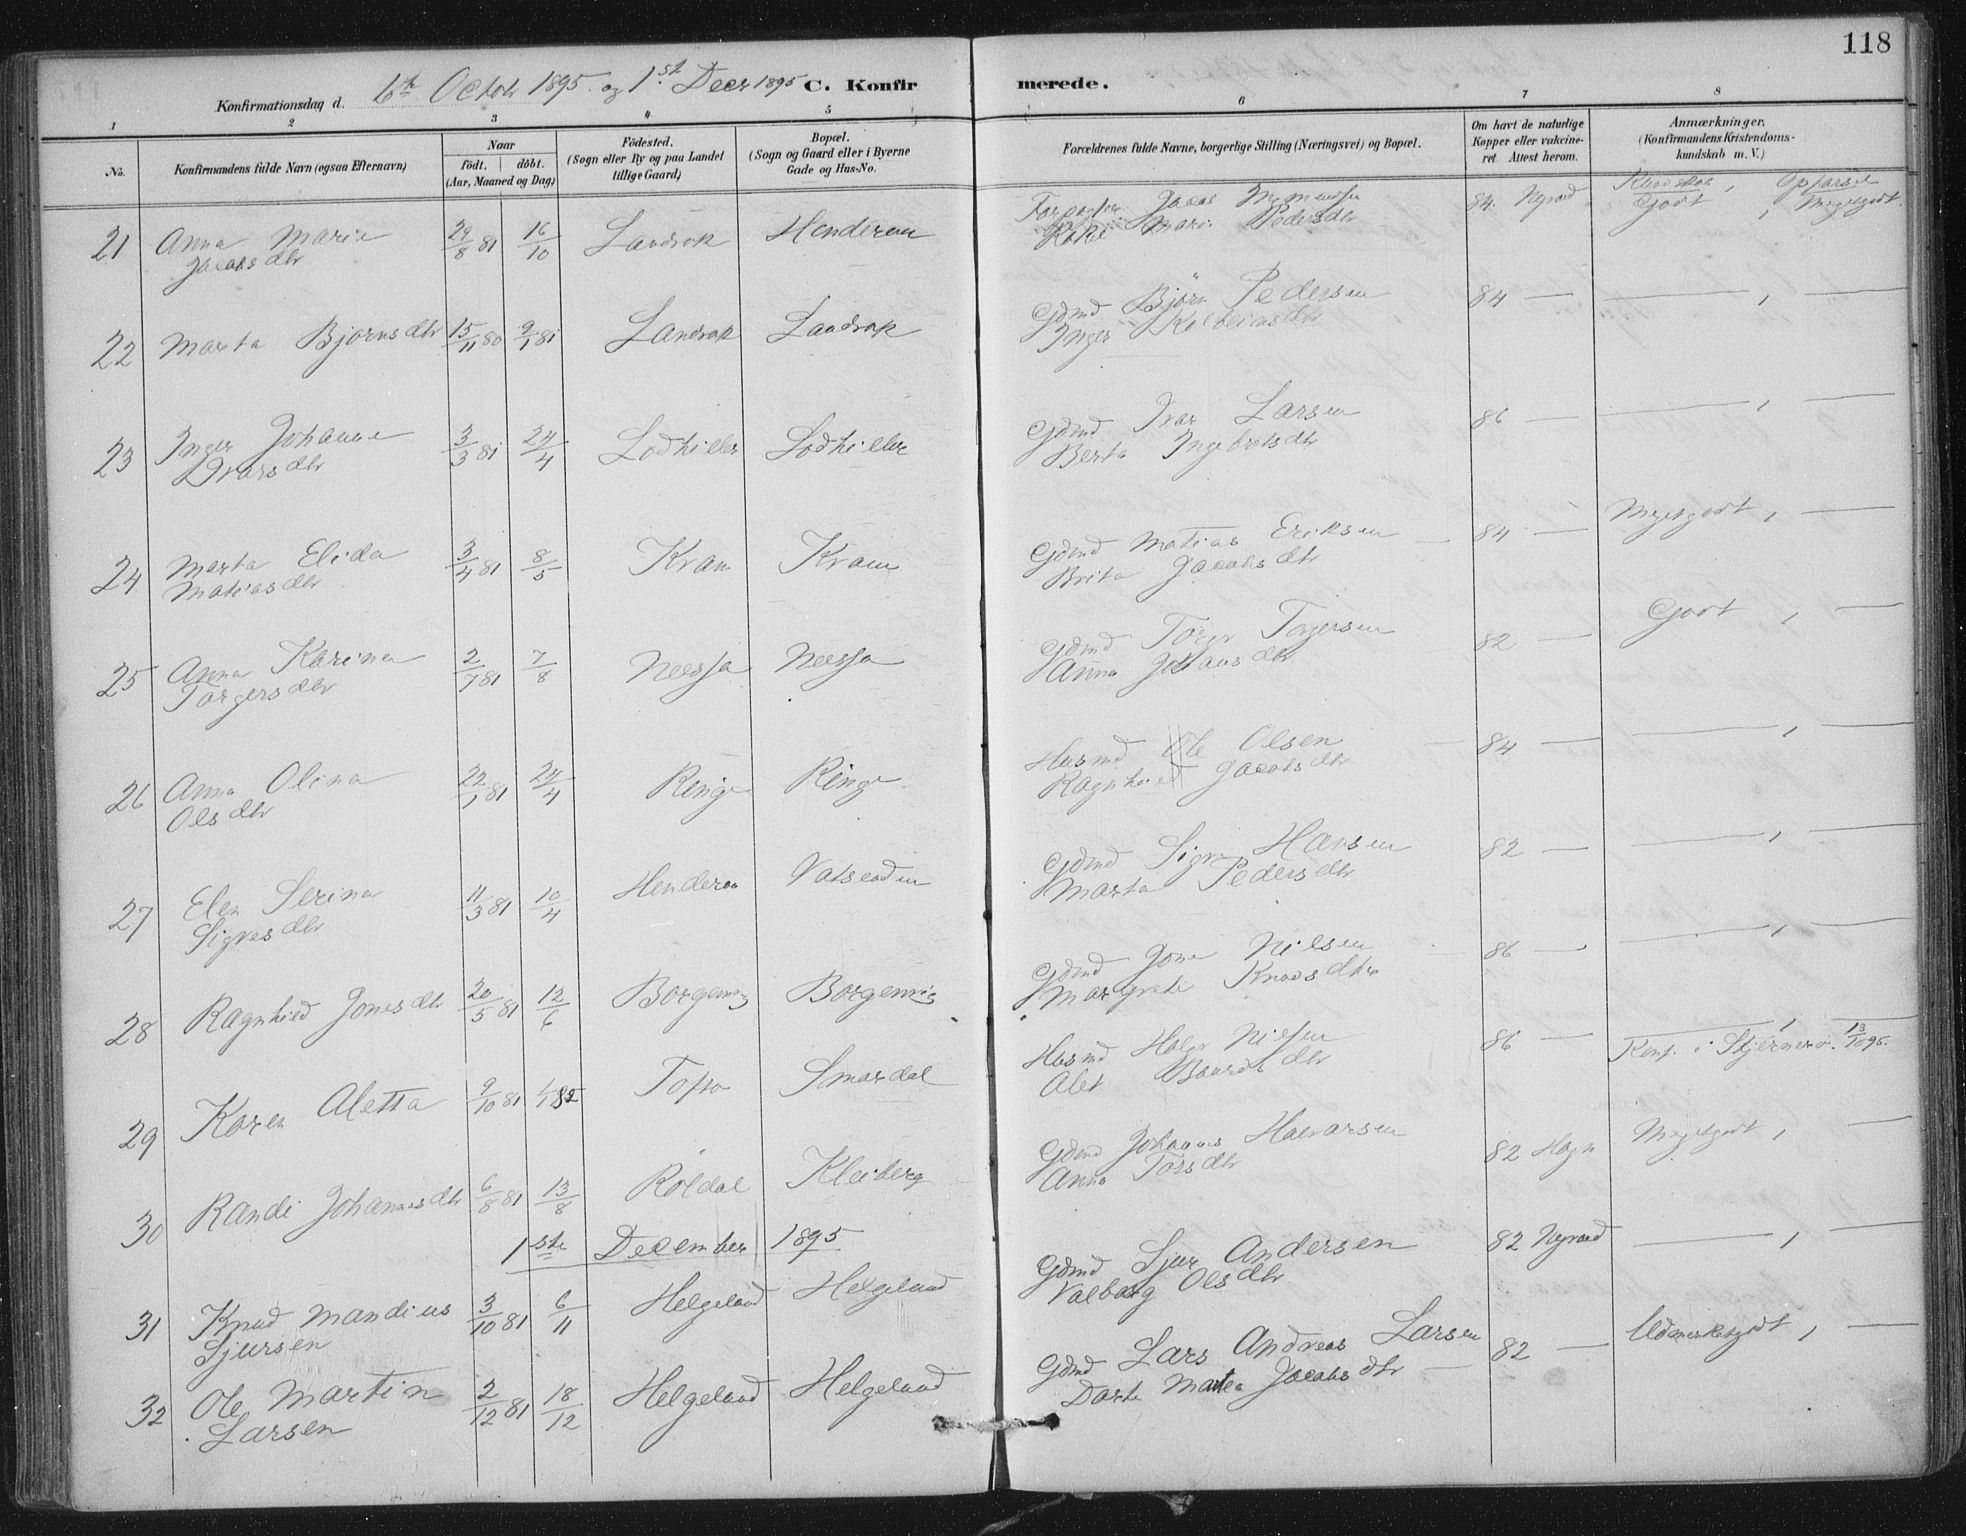 118
Konfirmationsdag d. 6te Octobr 1895 og 1ste Decr 1895 C. Konfirmerede.
1 2 3 4 5 6 7 8
No.
Konfirmandens fulde Navn (ogsaa Efternavn)
Naar
födt. döbt.
(Aar, Maaned og Dag)
Födested.
(Sogn eller By og paa Landet
tillige Gaard)
Bopæl.
(Sogn og Gaard eller i Byerne
Gade og Hus-No.
Forældrenes fulde Navne, borgerlige Stilling (Næringsvei) og Bopæl.
Om havt de naturlige
Kopper eller vakcine-
ret. Attest herom.
Anmærkninger.
(Konfirmandens Kristendoms-
kundskab m. V.)
Kundskab, Opførsel
21 Anna Marie 29/8 81 16/10 Landrak Henderaa Jacob 84. Godt, Megetgodt.
Jacobsdtr Mari Pedersdtr
22 Marta Bjørnsdtr 15/11 80 9/1 81 Landrak Landrak Gdmd Bjørn Pedersen 84 — — , —
Inger Kolbeinsdtr
23 Inger Johanne 3/3 81 24/4 Lodhiller Lodhiller Gdmd Ivar Larsen 86 — — , —
Ivarsdtr Berta Ingebretsdtr
24 Marta Elida 3/4 81 8/5 Kram Kram Gdmd Matias Eriksen 84 — Megetgodt, —
Matiasdtr Brita Jacobsdtr
25 Anna Karina 2/7 81 7/8 Nessa Nessa Gdmd Torger Torgersen 82 — Godt, —
Torgersdtr Anna
26 Anna Olina 22/1 81 24/4 Ringe Ringe Husmd Ole Olsen 84 — — , —
Olsdtr Ragnhild Jacobsdtr
27 Elen Serina 11/3 81 10/4 Henderaa Vatsenden Gdmd Sigve Hansen 82 — — , —
Sigvesdtr Marta Pedersdtr
28 Ragnhild Jonesdtr 20/5 81 12/6 Borgenvig Borgenvig Gdmd Jone Nilsen 86 — — , —
Margrete Knudsdtr
29 Karen Aletta 9/10 81 Smørdal Husmd Nilsen 86 — — , —
Konf. i Stjernerø. 13/10 95.
Alet Baardsdtr
30 Randi Johannesdtr 6/8 81 13/8 Røldal Kleiberg Gdmd Johannes Halvorsen 82 Megetgodt, —
Anna Torsdtr
1ste December 1895
31 Knud Mandius 3/10 81 6/11 Helgeland Helgeland Gdmd Sjur Andersen 82 — , —
Sjursen Valborg Olsdtr
32 Ole Martin 2/12 81 18/12 Helgeland Helgeland Gdmd Lars Andreas Larsen 82 — Udmerketgodt, —
Larsen Dorte Martea Jacobsdtr